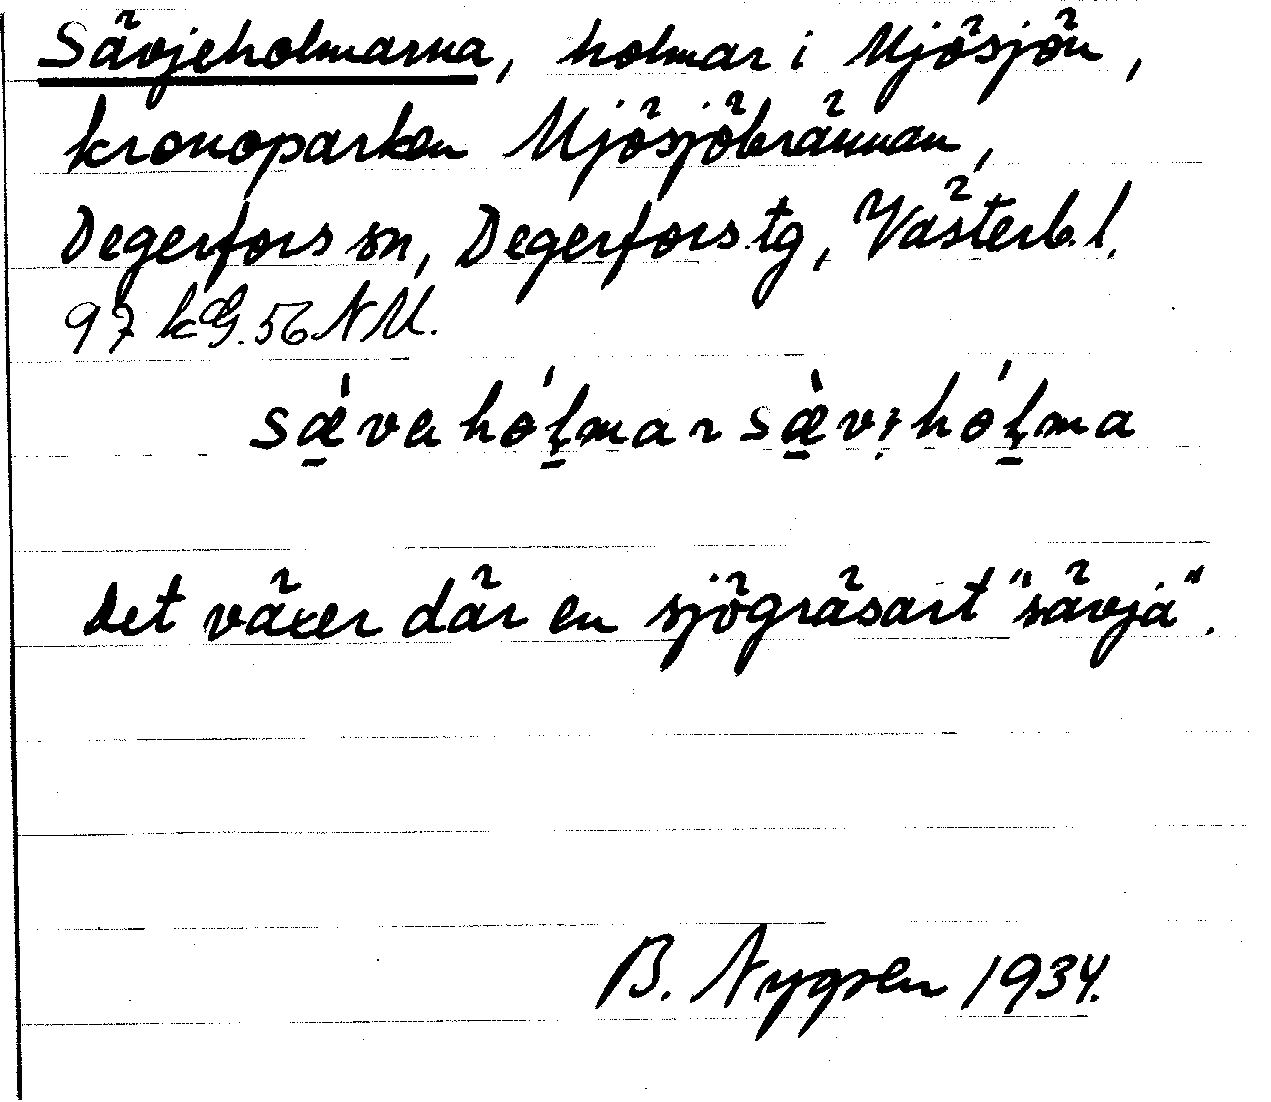 Sävjeholmarna, holmar i Mjösjön,
kronoparken Mjösjöbrännan,
Degerfors sn, Degerfors tg, Västerb. l.
97 kG. 56 NM.
sæ̀va hólmar sæ̀vı hólma
det växer där en sjögräsart "sävja".
B. Nygren 1934.